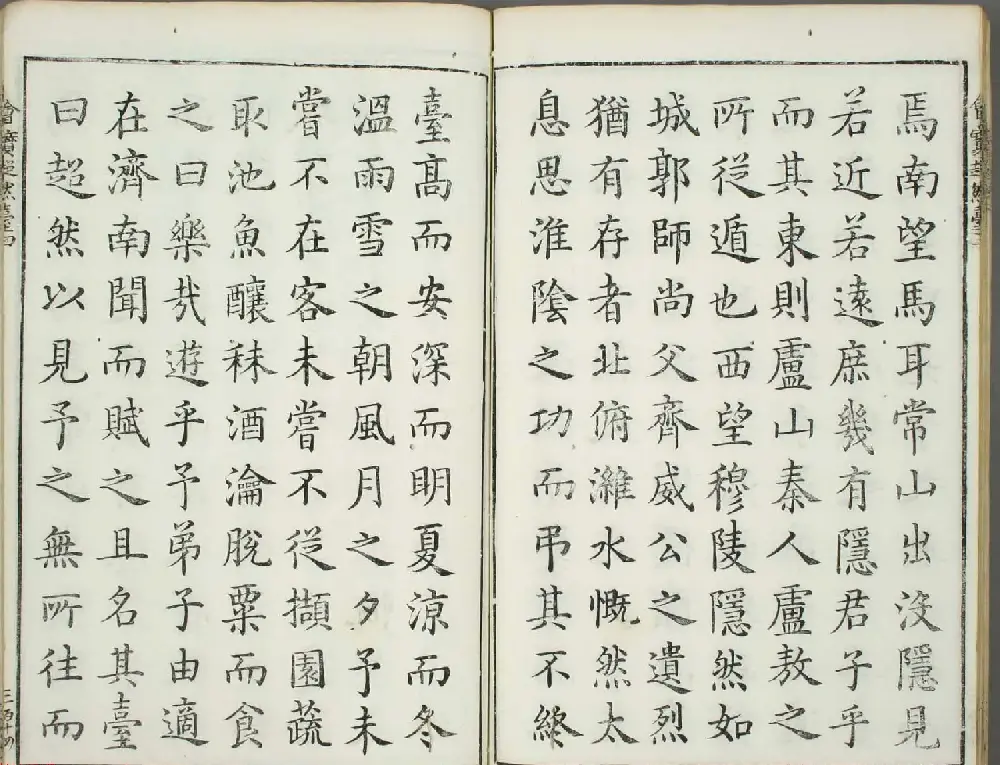 焉南望馬耳常山出沒隱見
若近若遠庶幾有隱君子乎
而其東則盧山秦人盧敖之
所從遁也西望穆陵隱然如
城郭師尚父齊威公之遺烈
猶有存者北俯濰水慨然太
息思淮陰之功而弔其不終
臺高而安深而明夏涼而冬
溫雨雪之朝風月之夕予未
嘗不在客未嘗不從擷園蔬
取池魚釀秫酒瀹脫粟而食
之曰樂哉遊乎予弟子由適
在濟南聞而賦之且名其臺
曰超然以見予之無所往而